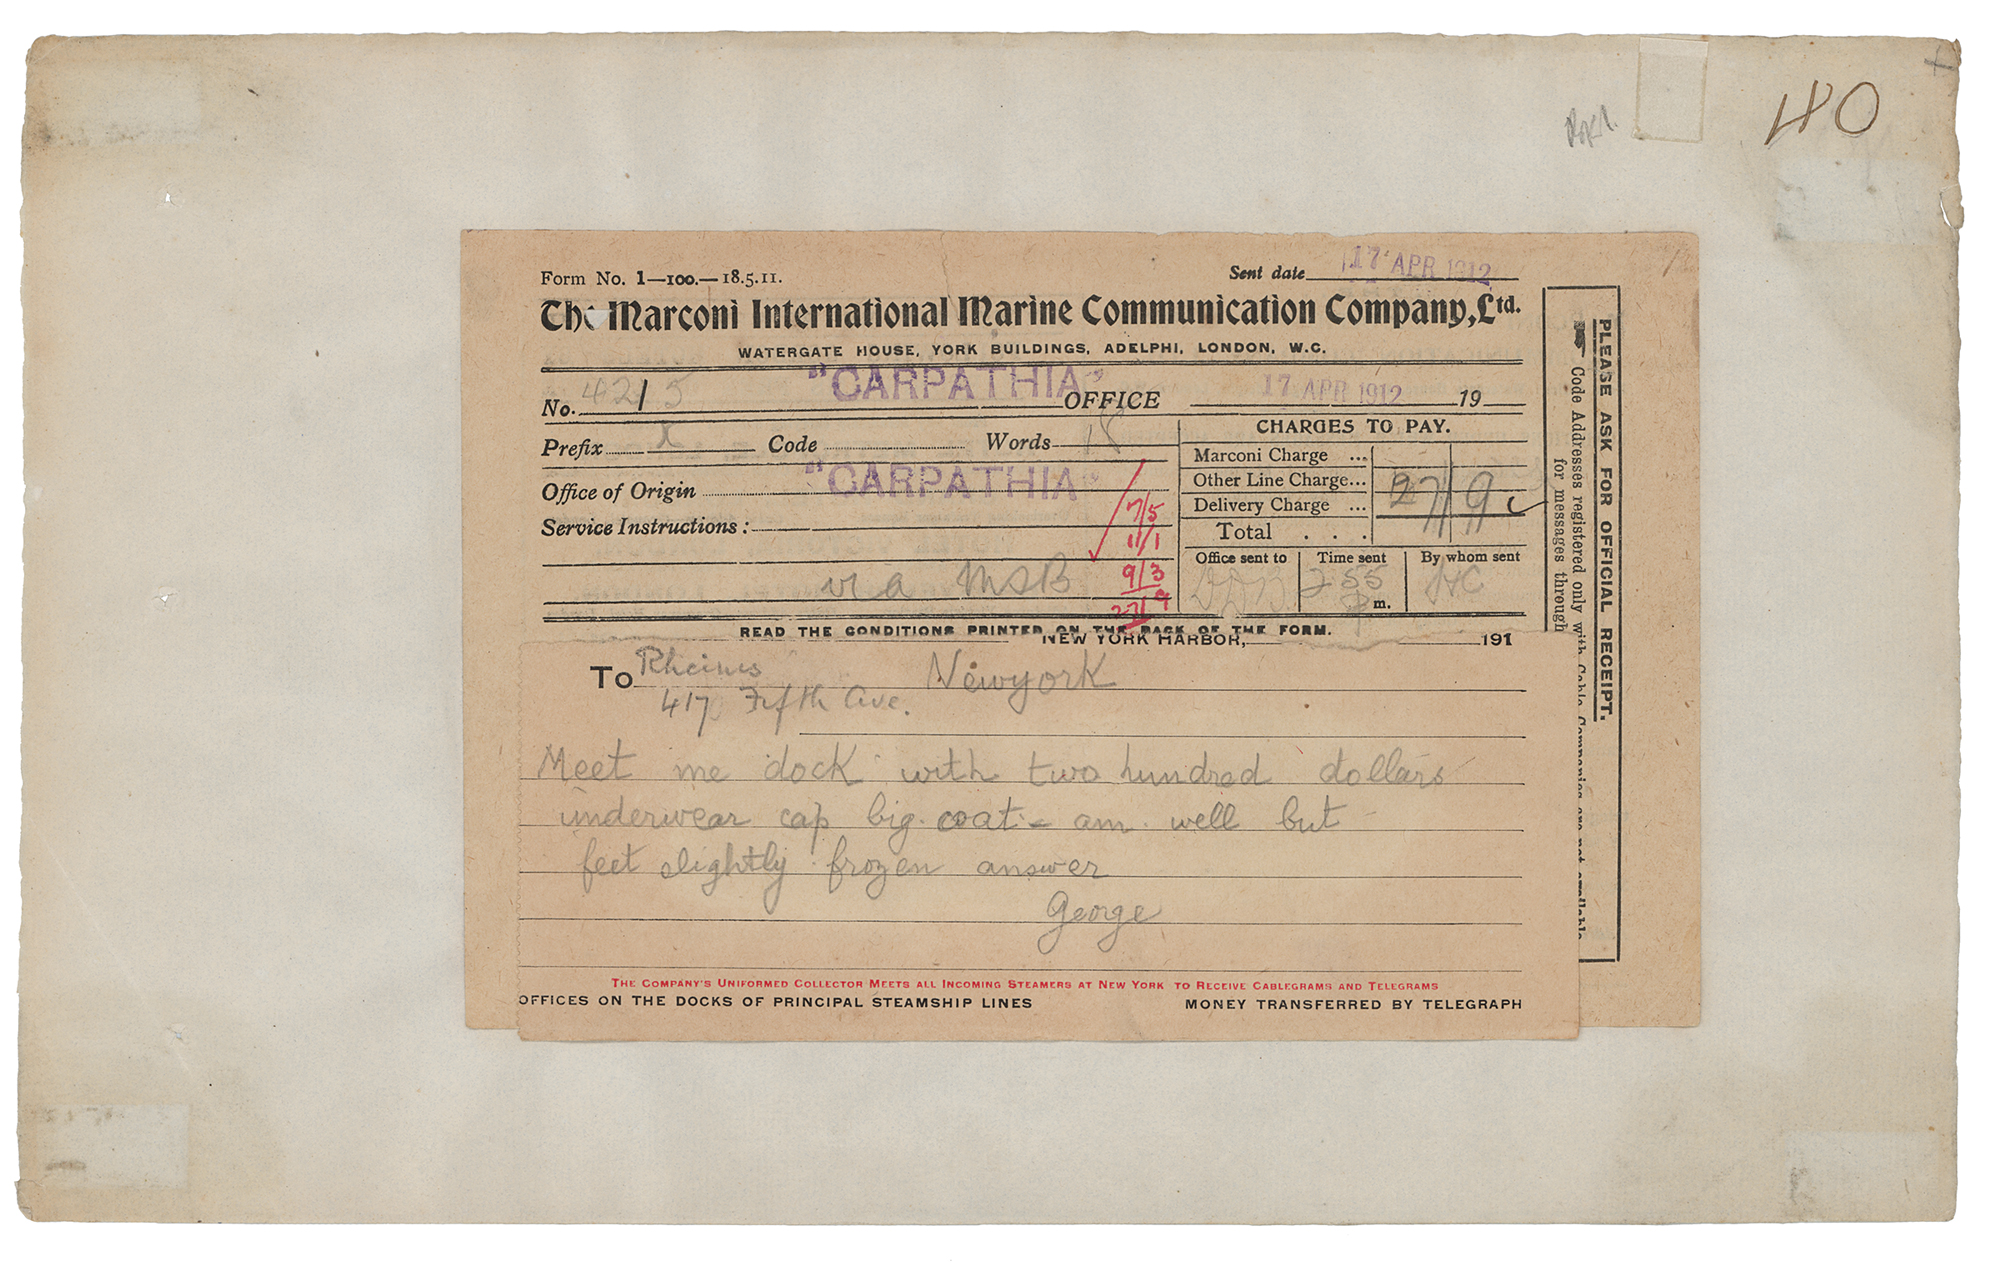 40
Form No. 1—100.—18.5.11.
Sent date 17 APR 1912
The Marconi International Marine Communication Company, Ltd.
WATERGATE HOUSE, YORK BUILDINGS, ADELPHI, LONDON, W.C.
No. 4215 "CARPATHIA" OFFICE 17 APR 1912 19
Prefix X Code Words 18
CHARGES TO PAY.
Office of Origin "CARPATHIA"
Marconi Charge ...
Other Line Charge...
Delivery Charge ...
27/9
Total . . .
Service Instructions :
7/5
11/1
9/3
27/9
via MSB
Office sent to
Time sent 2 55 m.
By whom sent
READ THE CONDITIONS PRINTED ON THE BACK OF THE FORM.
NEW YORK HARBOR, 191
To Rheims Newyork
417 Fifth Ave.
Meet me dock with two hundred dollars
underwear cap big coat - am well but
feet slightly frozen answer
George
THE COMPANY'S UNIFORMED COLLECTOR MEETS ALL INCOMING STEAMERS AT NEW YORK TO RECEIVE CABLEGRAMS AND TELEGRAMS
OFFICES ON THE DOCKS OF PRINCIPAL STEAMSHIP LINES MONEY TRANSFERRED BY TELEGRAPH
PLEASE ASK FOR OFFICIAL RECEIPT.
Code Addresses registered only with Cable Companies are not available
for messages through